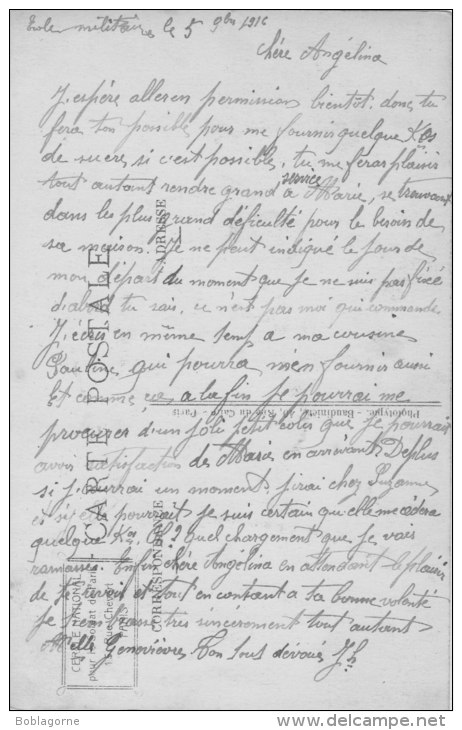 Ecole militaire le 5 9bre 1916
Chère Angélina
J'espère aller en permission bientôt. donc tu
fera ton possible pour me fournir quelque Kos
de sucre, si c'est possible, tu me feras plaisir
tout autant rendre grand service à Marie, se trouvant
dans les plus grand dificulté pour le besoin de
sa maison. Je ne peut indiqué le jour de
mon départ du moment que je ne suis pas fixé
d'abord tu sais, ce n'est pas moi qui commande.
J'écris en même temp a ma cousine
Pauline, qui pourra m'en fournir aussi
Et comme ça a la fin je pourrai me
procurer d'un joli petit colis que je pourrais
avoir satisfaction de Marie en arrivant. De plus
si j'aurrai un moment j'irai chez Suzanne
et si je pourrait je suis certain qu'elle me cèdera
quelque Kos Oh? quel chargement que je vais
ramasser. Enfin chère Angélina en attendant le plaisir
de te revoir et tout en comptant a ta bonne volonté
je t'embrasse très sincerement tout autant
Melle Genevière. Ton tous dévoué Jh
CARTE POSTALE
ADRESSE
CORRESPONDANCE
Phototypie - Baudinière
Paris
CERCLE NATIONAL
pour le Soldat de Paris
15, Rue Chevert
PARIS
Boblagorne